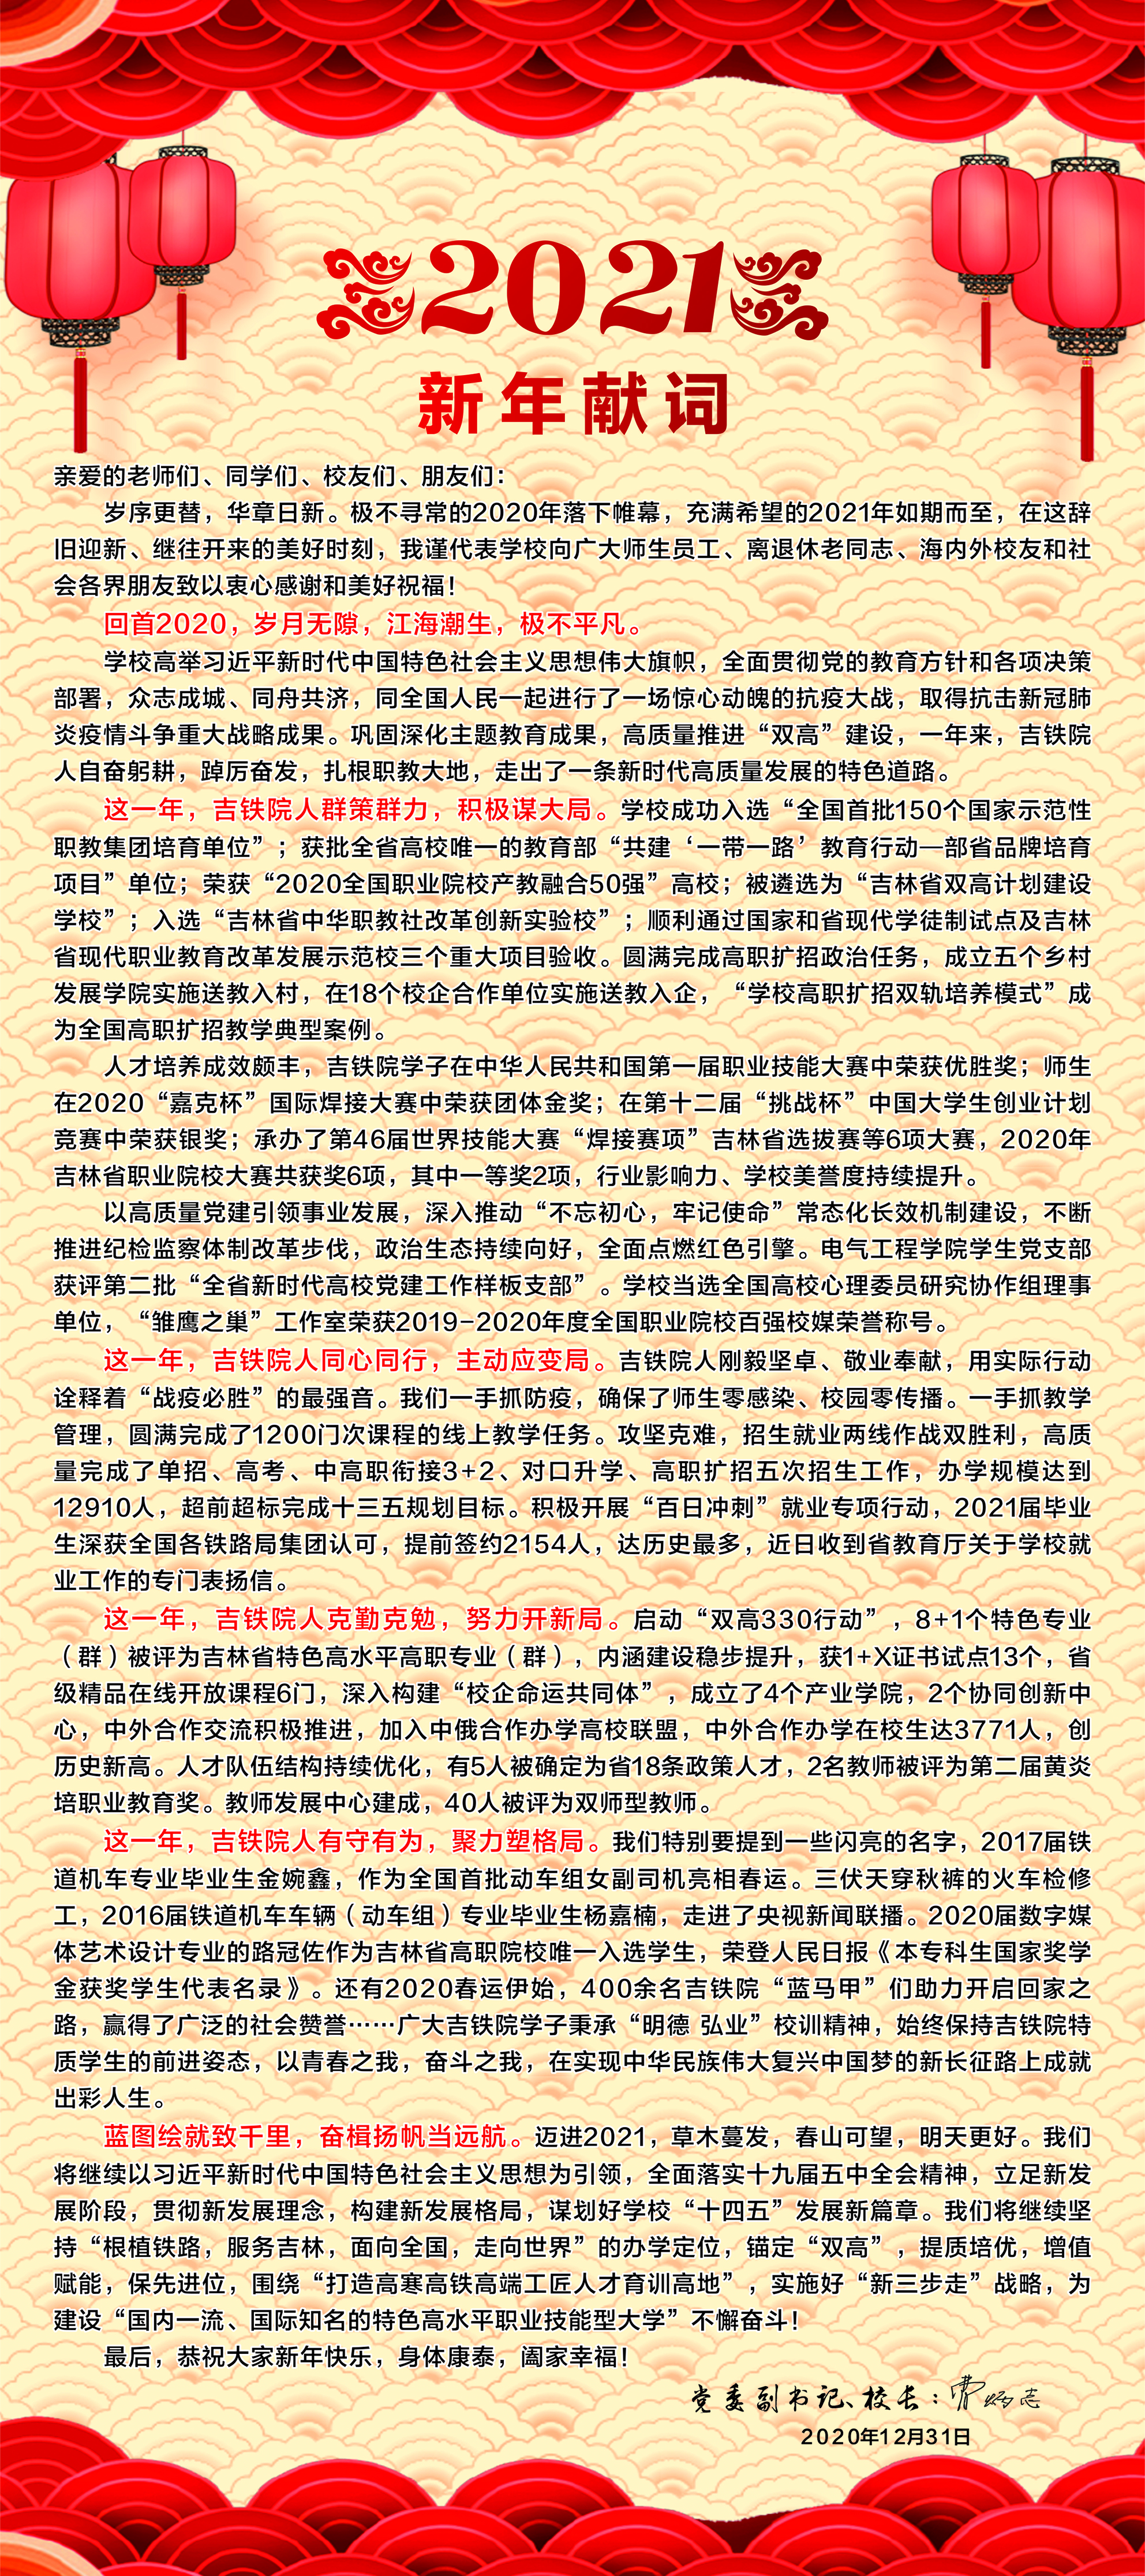 2021
新年献词
亲爱的老师们、同学们、校友们、朋友们：
岁序更替，华章日新。极不寻常的2020年落下帷幕，充满希望的2021年如期而至，在这辞
旧迎新、继往开来的美好时刻，我谨代表学校向广大师生员工、离退休老同志、海内外校友和社
会各界朋友致以衷心感谢和美好祝福！
回首2020，岁月无隙，江海潮生，极不平凡。
学校高举习近平新时代中国特色社会主义思想伟大旗帜，全面贯彻党的教育方针和各项决策
部署，众志成城、同舟共济，同全国人民一起进行了一场惊心动魄的抗疫大战，取得抗击新冠肺
炎疫情斗争重大战略成果。巩固深化主题教育成果，高质量推进“双高”建设，一年来，吉铁院
人自奋躬耕，踔厉奋发，扎根职教大地，走出了一条新时代高质量发展的特色道路。
这一年，吉铁院人群策群力，积极谋大局。学校成功入选“全国首批150个国家示范性
职教集团培育单位”；获批全省高校唯一的教育部“共建‘一带一路’教育行动—部省品牌培育
项目”单位；荣获“2020全国职业院校产教融合50强”高校；被遴选为“吉林省双高计划建设
学校”；入选“吉林省中华职教社改革创新实验校”；顺利通过国家和省现代学徒制试点及吉林
省现代职业教育改革发展示范校三个重大项目验收。圆满完成高职扩招政治任务，成立五个乡村
发展学院实施送教入村，在18个校企合作单位实施送教入企，“学校高职扩招双轨培养模式”成
为全国高职扩招教学典型案例。
人才培养成效颇丰，吉铁院学子在中华人民共和国第一届职业技能大赛中荣获优胜奖；师生
在2020“嘉克杯”国际焊接大赛中荣获团体金奖；在第十二届“挑战杯”中国大学生创业计划
竞赛中荣获银奖；承办了第46届世界技能大赛“焊接赛项”吉林省选拔赛等6项大赛，2020年
吉林省职业院校大赛共获奖6项，其中一等奖2项，行业影响力、学校美誉度持续提升。
以高质量党建引领事业发展，深入推动“不忘初心，牢记使命”常态化长效机制建设，不断
推进纪检监察体制改革步伐，政治生态持续向好，全面点燃红色引擎。电气工程学院学生党支部
获评第二批“全省新时代高校党建工作样板支部”。学校当选全国高校心理委员研究协作组理事
单位，“雏鹰之巢”工作室荣获2019-2020年度全国职业院校百强校媒荣誉称号。
这一年，吉铁院人同心同行，主动应变局。吉铁院人刚毅坚卓、敬业奉献，用实际行动
诠释着“战疫必胜”的最强音。我们一手抓防疫，确保了师生零感染、校园零传播。一手抓教学
管理，圆满完成了1200门次课程的线上教学任务。攻坚克难，招生就业两线作战双胜利，高质
量完成了单招、高考、中高职衔接3+2、对口升学、高职扩招五次招生工作，办学规模达到
12910人，超前超标完成十三五规划目标。积极开展“百日冲刺”就业专项行动，2021届毕业
生深获全国各铁路局集团认可，提前签约2154人，达历史最多，近日收到省教育厅关于学校就
业工作的专门表扬信。
这一年，吉铁院人克勤克勉，努力开新局。启动“双高330行动”，8+1个特色专业
（群）被评为吉林省特色高水平高职专业（群），内涵建设稳步提升，获1+X证书试点13个，省
级精品在线开放课程6门，深入构建“校企命运共同体”，成立了4个产业学院，2个协同创新中
心，中外合作交流积极推进，加入中俄合作办学高校联盟，中外合作办学在校生达3771人，创
历史新高。人才队伍结构持续优化，有5人被确定为省18条政策人才，2名教师被评为第二届黄炎
培职业教育奖。教师发展中心建成，40人被评为双师型教师。
这一年，吉铁院人有守有为，聚力塑格局。我们特别要提到一些闪亮的名字，2017届铁
道机车专业毕业生金婉鑫，作为全国首批动车组女副司机亮相春运。三伏天穿秋裤的火车检修
工，2016届铁道机车车辆（动车组）专业毕业生杨嘉楠，走进了央视新闻联播。2020届数字媒
体艺术设计专业的路冠佐作为吉林省高职院校唯一入选学生，荣登人民日报《本专科生国家奖学
金获奖学生代表名录》。还有2020春运伊始，400余名吉铁院“蓝马甲”们助力开启回家之
路，赢得了广泛的社会赞誉……广大吉铁院学子秉承“明德 弘业”校训精神，始终保持吉铁院特
质学生的前进姿态，以青春之我，奋斗之我，在实现中华民族伟大复兴中国梦的新长征路上成就
出彩人生。
蓝图绘就致千里，奋楫扬帆当远航。迈进2021，草木蔓发，春山可望，明天更好。我们
将继续以习近平新时代中国特色社会主义思想为引领，全面落实十九届五中全会精神，立足新发
展阶段，贯彻新发展理念，构建新发展格局，谋划好学校“十四五”发展新篇章。我们将继续坚
持“根植铁路，服务吉林，面向全国，走向世界”的办学定位，锚定“双高”，提质培优，增值
赋能，保先进位，围绕“打造高寒高铁高端工匠人才育训高地”，实施好“新三步走”战略，为
建设“国内一流、国际知名的特色高水平职业技能型大学”不懈奋斗！
最后，恭祝大家新年快乐，身体康泰，阖家幸福！
党委副书记、校长：
2020年12月31日